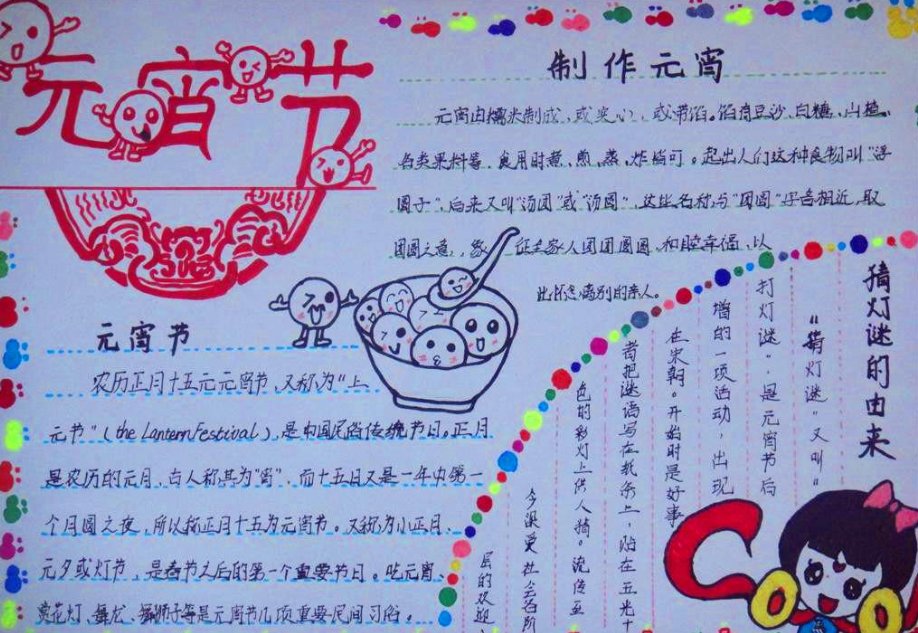 元宵节
制作元宵
元宵由糯米制成,或实心,或带馅。馅有豆沙、白糖、山楂、
各类果料等,食用时煮、煎、蒸、炸皆可。起出人们这种食物叫“浮
圆子”,后来又叫“汤团”或“汤圆”,这些名称与“团圆”字音相近,取
团圆之意,象征全家人团团圆圆,和睦幸福,以
此怀念离别的亲人。
元宵节
农历正月十五元元宵节,又称为“上
元节”(the Lantern Festival),是中国民俗传统节日。正月
是农历的元月,古人称其为“宵”,而十五日又是一年中第一
个月圆之夜,所以称正月十五为元宵节。又称为小正月、
元夕或灯节,是春节之后的第一个重要节日。吃元宵、
赏花灯、舞龙、舞狮子等是元宵节几项重要民间习俗。
猜灯谜的由来
“猜灯谜”又叫“
打灯谜”,是元宵节后
增的一项活动,出现
在宋朝。开始时是好事
者把谜语写在纸条上,贴在五光十
色的彩灯上供人猜。流传至
今深受社会各阶
层的欢迎